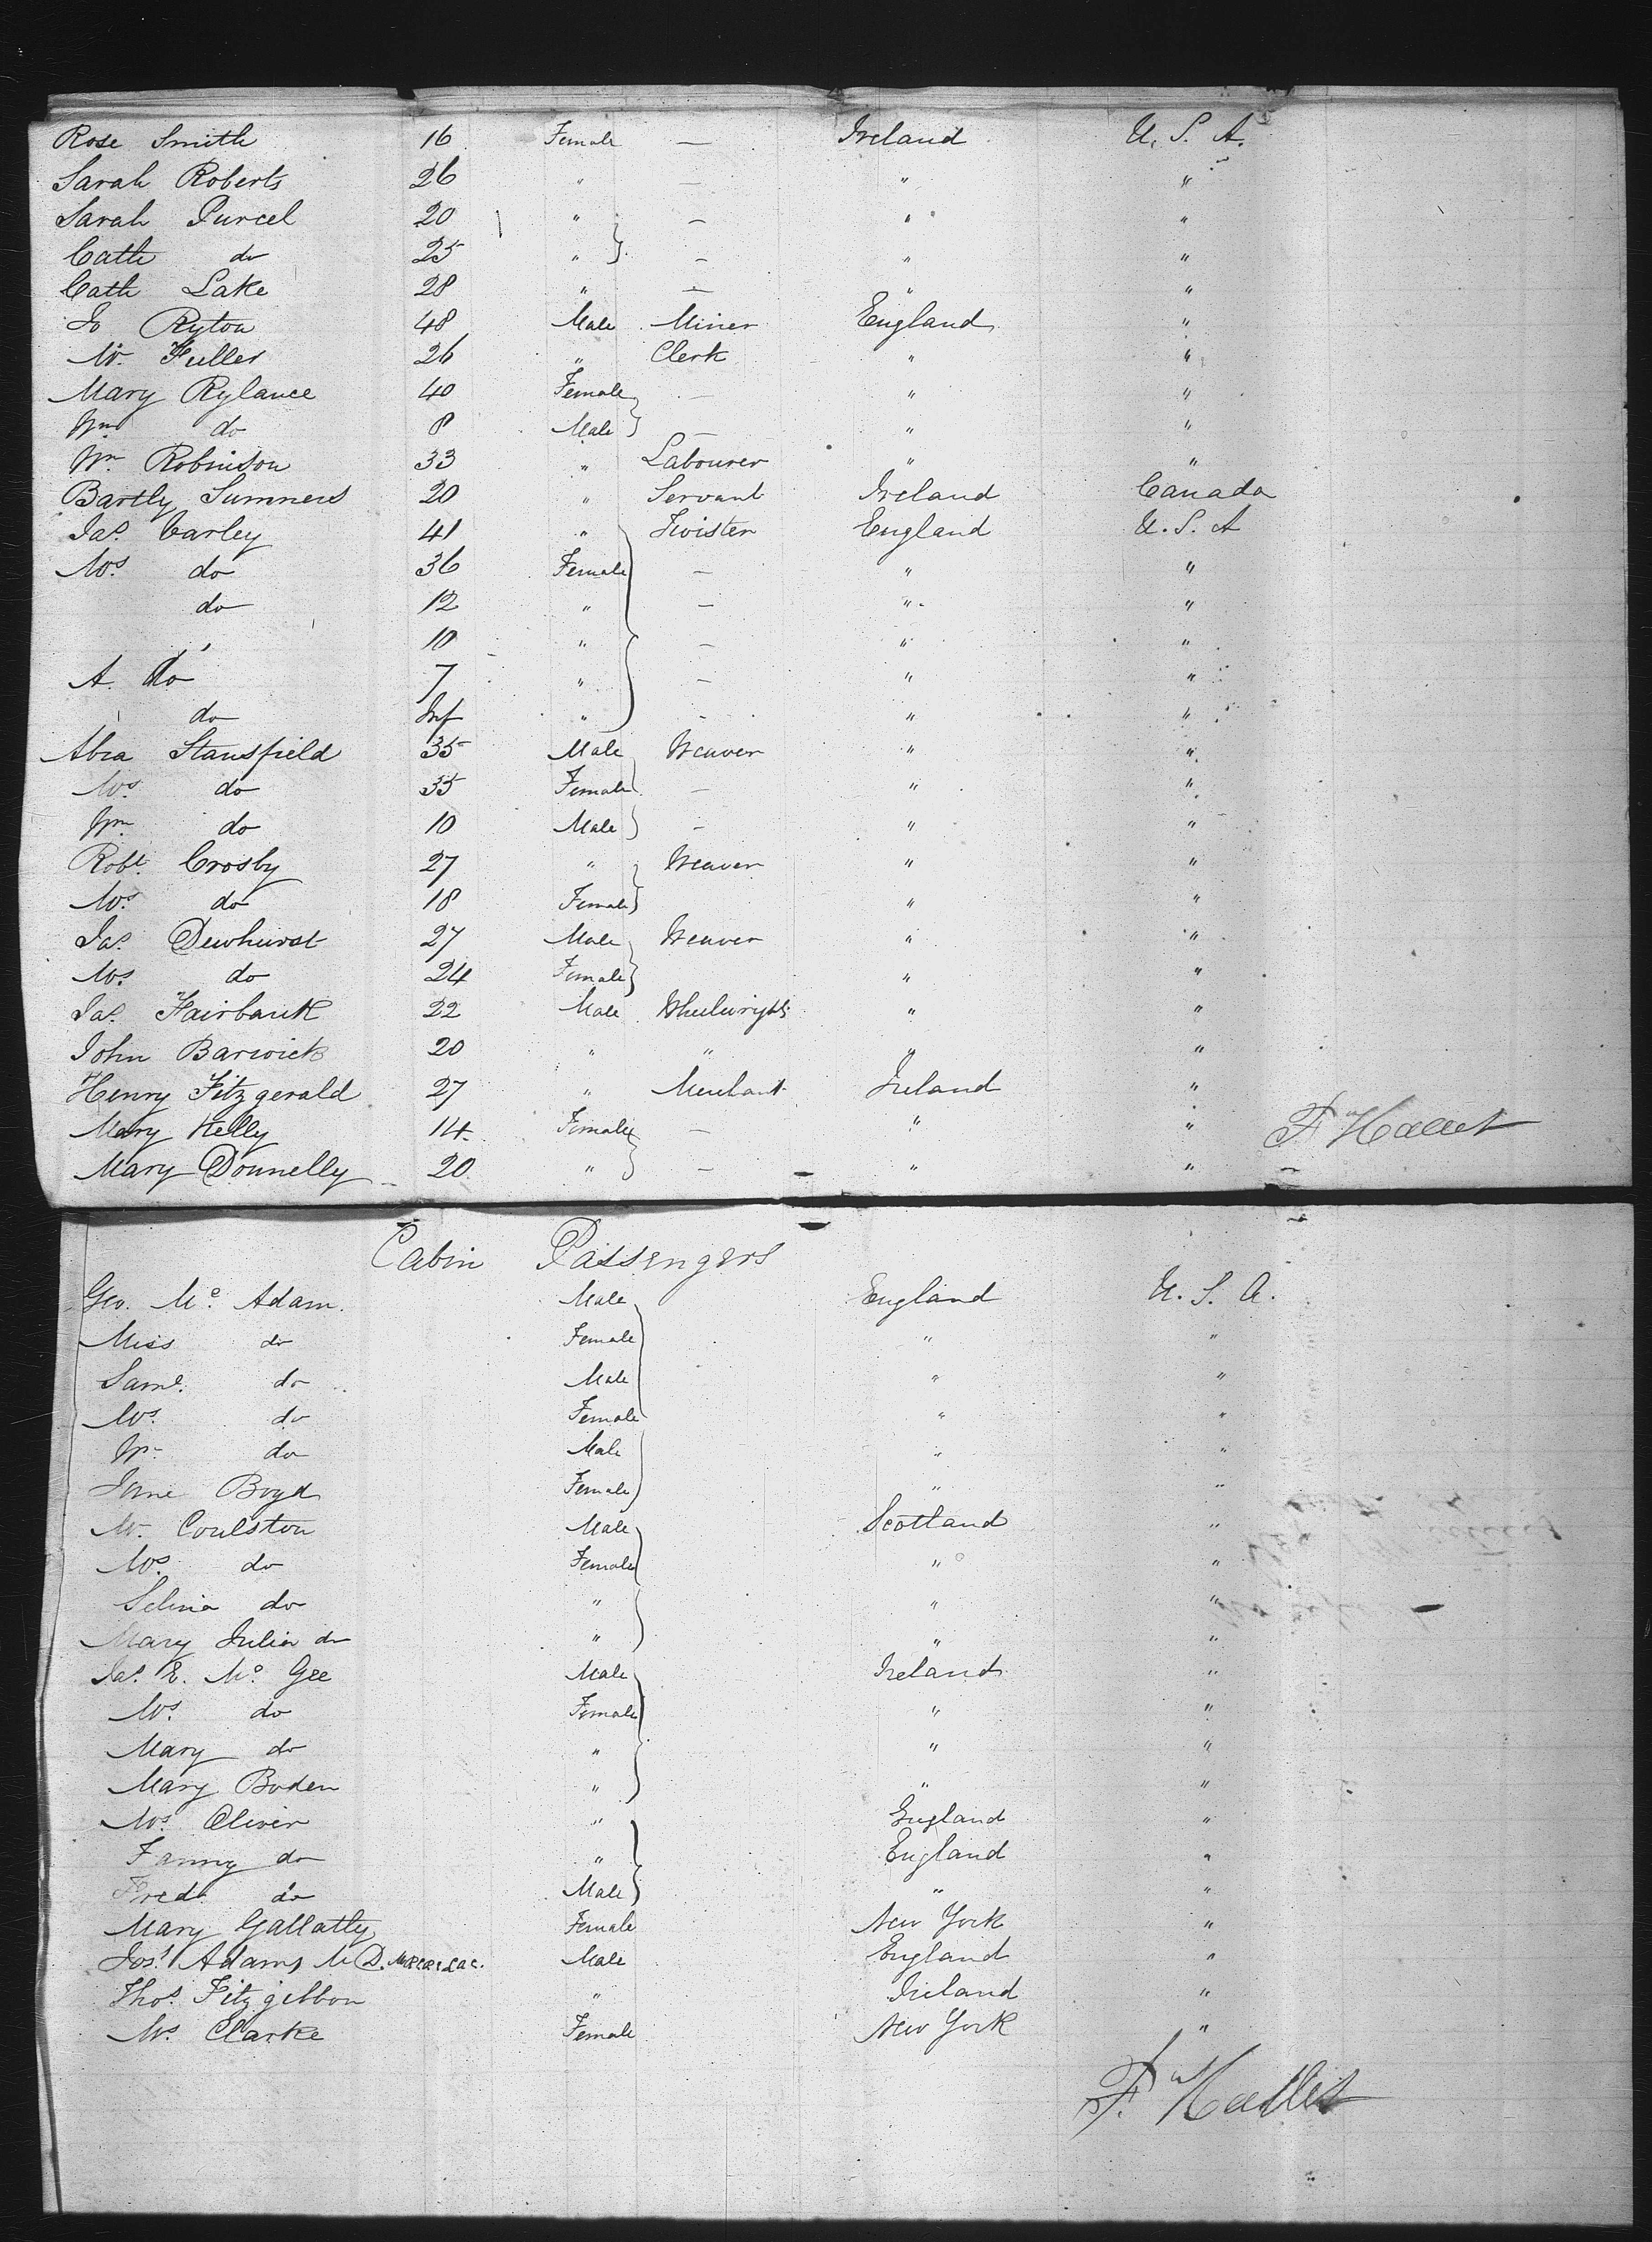 Rose Smith 16 Female — Ireland U. S. A.
Sarah Roberts 26 " — " "
Sarah Purcel 20 " — " "
Cath do 25 " — " "
Cath Lake 28 " — " "
Jo Ryton 48 Male Miner England "
Mr. Fuller 26 " Clerk " "
Mary Rylance 40 Female — " "
Wm do 8 Male — " "
Wm Robinson 33 " Labourer " "
Bartly Summers 20 " Servant Ireland Canada
Jas. Carley 41 " Twister England U. S. A
Mrs. do 36 Female — " "
do 12 " — " "
" 10 " — " "
A. do 7 " — " "
do Inf " — " "
Abra Stansfield 35 Male Weaver " "
Mrs. do 35 Female — " "
Wm do 10 Male — " "
Robt. Crosby 27 " Weaver " "
Mrs. do 18 Female " "
Jas. Dewhurst 27 Male Weaver " "
Mrs. do 24 Female " "
Jas. Fairbank 22 Male Wheelwright " "
John Barwick 20 " " " "
Henry Fitzgerald 27 " Merchant Ireland "
Mary Kelly 14 Female — " "
F W Hallet
Mary Donnelly 20 " — " "
Cabin Passengers
Geo. Mc. Adam. Male England U. S. A.
Miss do Female " "
Saml. do Male " "
Mrs. do Female " "
Wm do Male " "
Jane Boyd Female " "
Mr. Coulston Male Scotland "
Mrs. do Female " "
Selina do " " "
Mary Julia do " " "
Jas. E. Mc. Gee Male Ireland "
Mrs. do Female " "
Mary do " " "
Mary Boden " " "
Mrs. Oliver " England "
Fanny do " England "
Fredk do Male " "
Mary Gallatly Female New York "
Jos. Adams M. D. Male England "
Thos. Fitzgibbon " Ireland "
Mrs. Clarke Female New York "
F. W Hallet